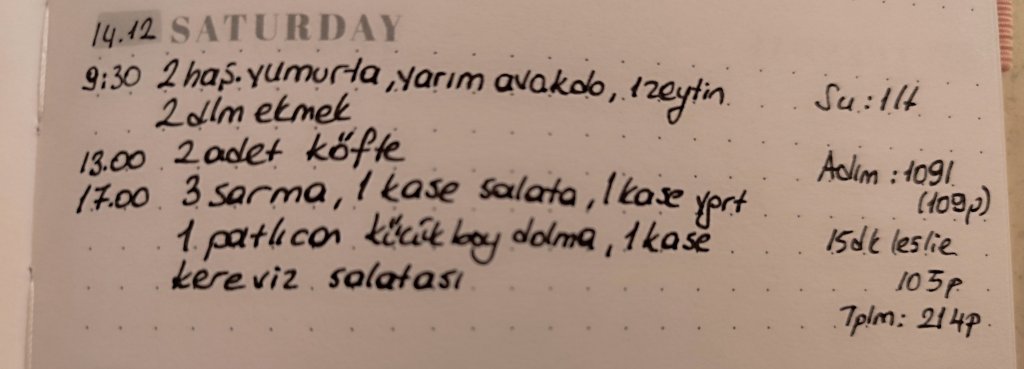 14.12 SATURDAY
9:30 2 haş. yumurta, yarım avakdo, 1 zeytin
2 dlm ekmek
13.00 2 adet köfte
17.00 3 sarma, 1 kase salata, 1 kase yprt
1 patlıcan küçük boy dolma, 1 kase
kereviz salatası
Su : 1 lt
Adım : 1091
(109p)
15dk leslie
105p
Tplm: 214p